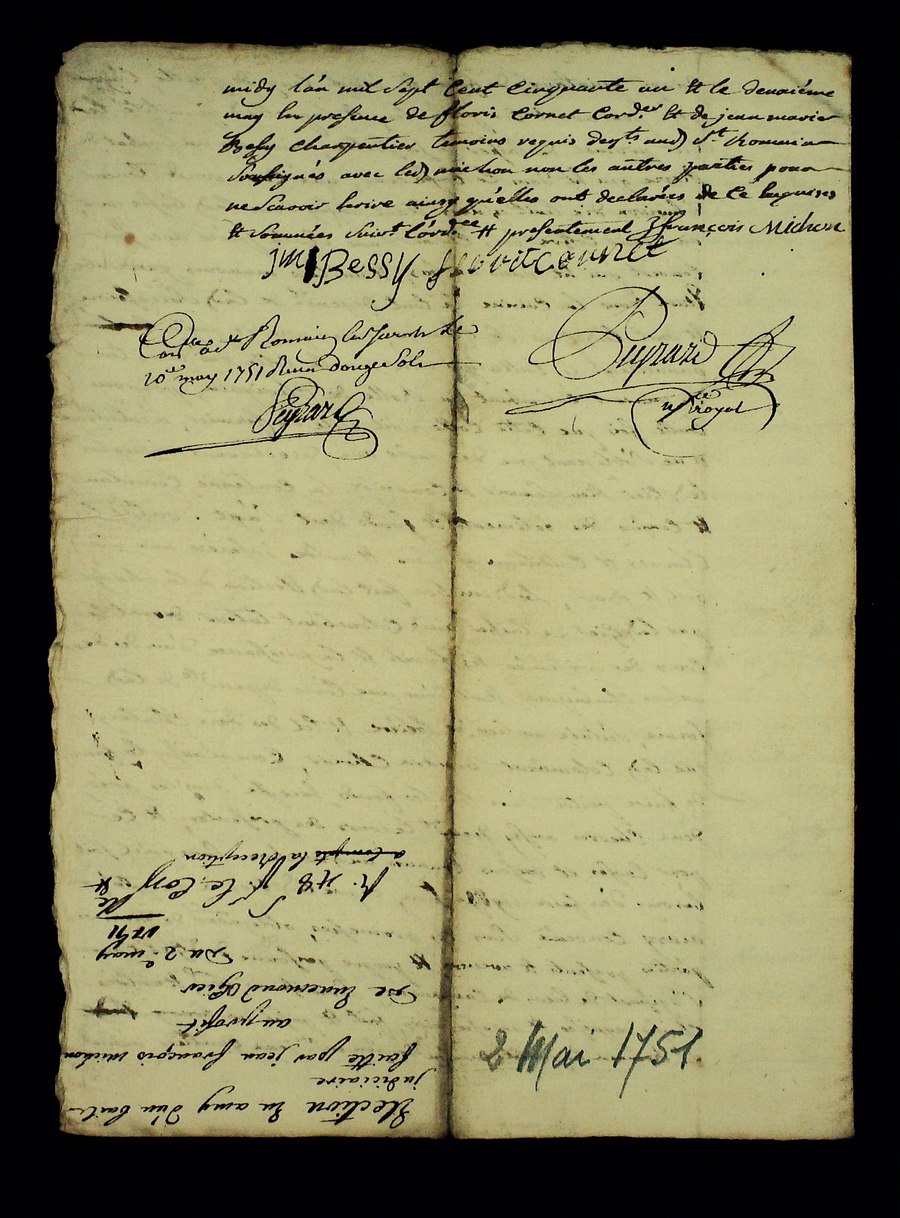 midy l'an mil sept cent cinquante un & le deuxiéme
may en presence de floris Cornet Cord.er & de jean marie
Bessy charpentier temoins requis de st Romain
soussignés avec led) michon non les autres parties pour
ne scavoir écrire ainsy qu'elles ont declarées de ce enquises
& sommées suiv.t l'ord.ce & presentement J françois Michon
jm Bessy florit cournet
Con.lé a s.t Romain le
10.e may 1751 Reçu douze sols
Peyrard
Peyrard
n.re royal
Election en amy d'un bail
judiciaire
faitte par jean françois michon
au profit
De Ennemond Ogier
Du 2.e may
1751
N. 48 le
a compte la Reception
2 Mai 1751.